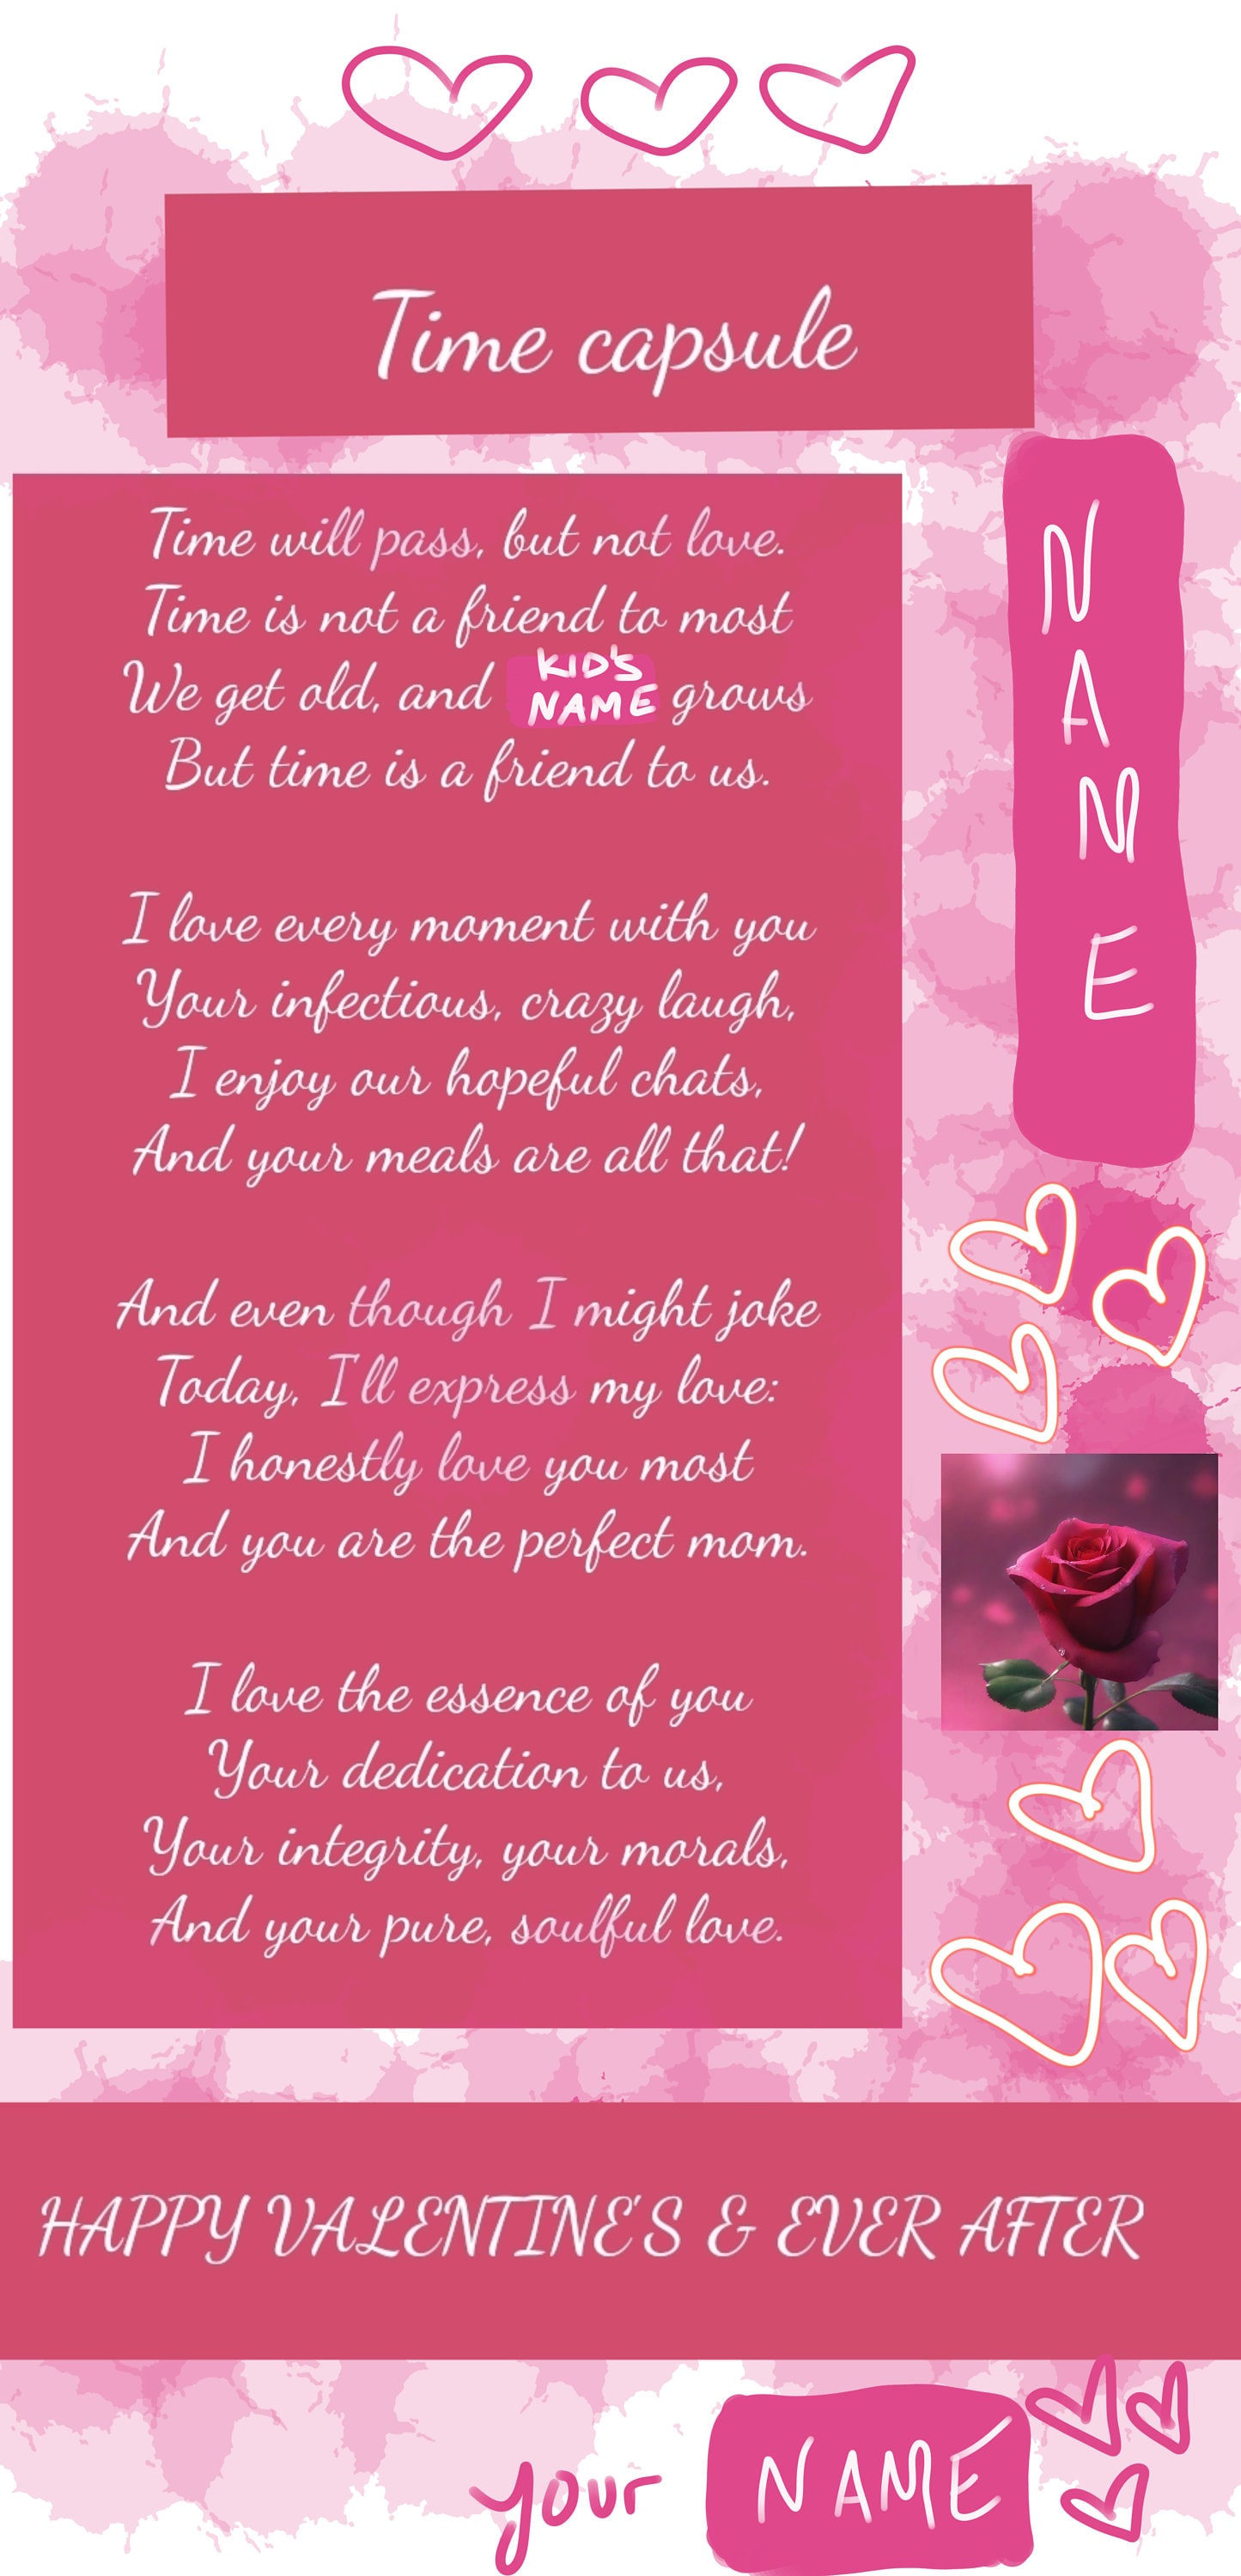 Time capsule
Time will pass, but not love.
Time is not a friend to most
We get old, and KID'S NAME grows
But time is a friend to us.
I love every moment with you
Your infectious, crazy laugh,
I enjoy our hopeful chats,
And your meals are all that!
And even though I might joke
Today, I'll express my love:
I honestly love you most
And you are the perfect mom.
I love the essence of you
Your dedication to us,
Your integrity, your morals,
And your pure, soulful love.
NANE
HAPPY VALENTINE'S & EVER AFTER
your NAME